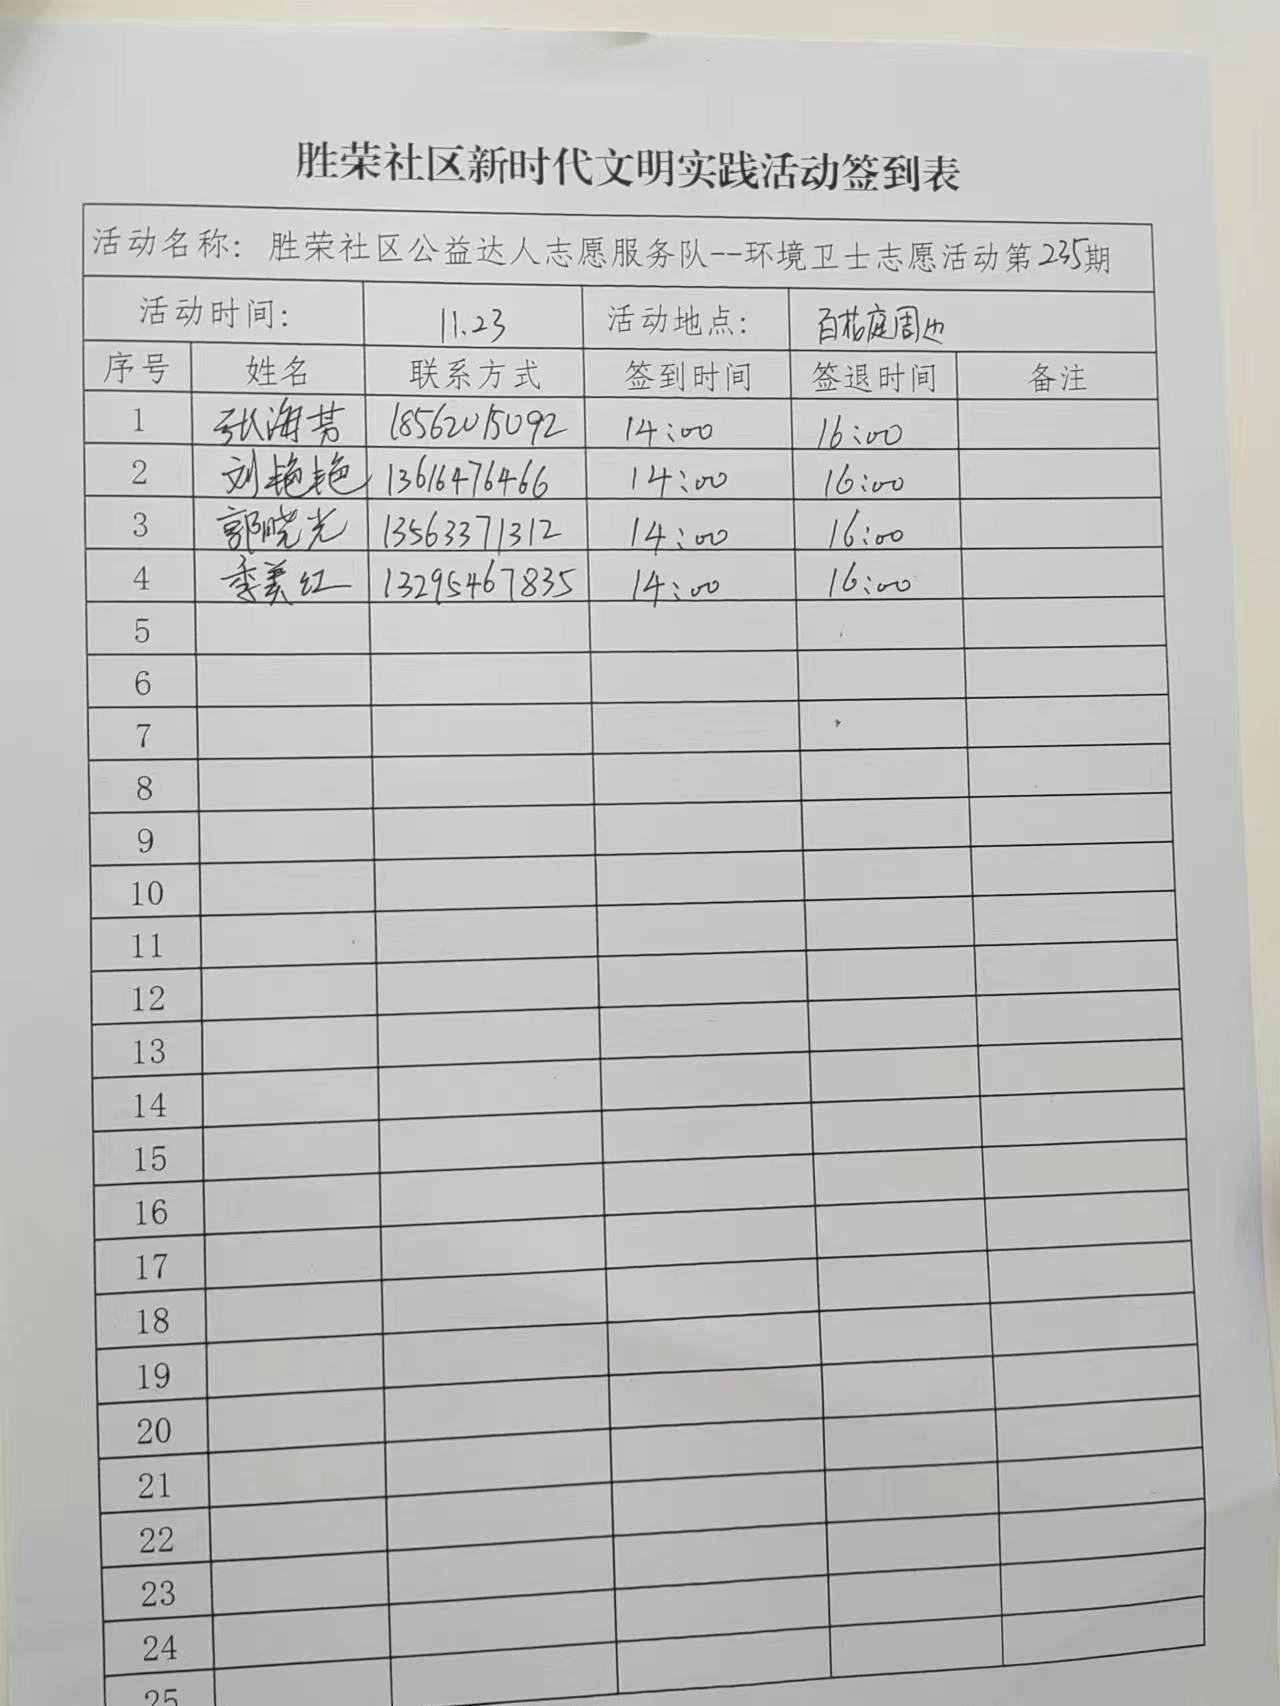 胜荣社区新时代文明实践活动签到表
活动名称：胜荣社区公益达人志愿服务队--环境卫士志愿活动第235期
活动时间： 11.23 活动地点： 百桔庭周边
序号 姓名 联系方式 签到时间 签退时间 备注
1 张海芳 18562015092 14:00 16:00
2 刘艳艳 13616476466 14:00 16:00
3 郭晓光 13563371312 14:00 16:00
4 季美红 13295467835 14:00 16:00
5
6
7
8
9
10
11
12
13
14
15
16
17
18
19
20
21
22
23
24
25